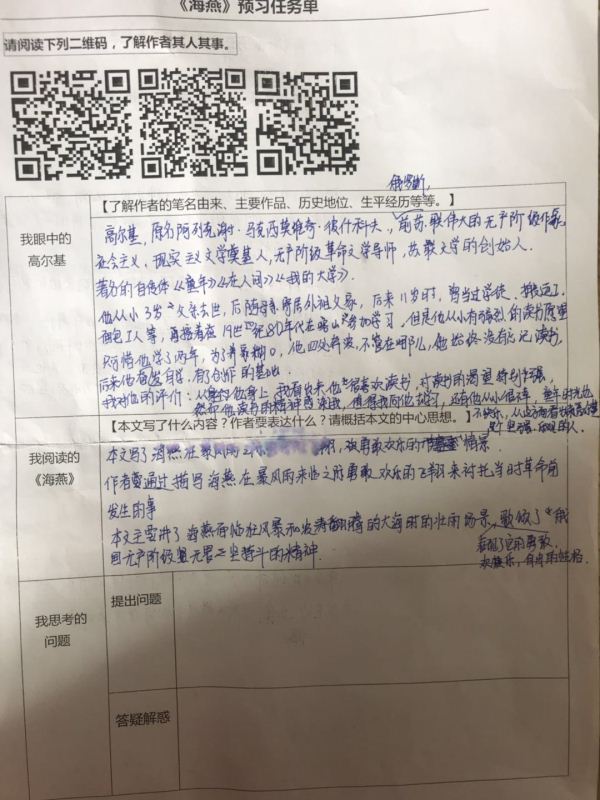 《海燕》预习任务单
请阅读下列二维码，了解作者其人其事。
【了解作者的笔名由来、主要作品、历史地位、生平经历等等。】
俄罗斯，
我眼中的
高尔基
高尔基，原名阿列克谢·马克西莫维奇·彼什科夫，前苏联伟大的无产阶级作家
社会主义，现实主义文学奠基人，无产阶级革命文学导师，苏联文学的创始人．
著名的自传体《童年》《在人间》《我的大学》．
他从小3岁父亲去世，后随母亲寄居外祖父家，后来11岁时，曾当过学徒、搬运工、
面包工人等，再接着在19世纪80年代在喀山参加学习．但是他从小有强烈的读书愿望
只可惜他学了两年，为了养家糊口，他四处奔波，不管在哪儿，他始终没有忘记读书，
后来他奋发自学，有了创作的基础．
我对他的评价：从他身上，我看出来他很喜欢读书，对读书的渴望特别强，
【本文写了什么内容？作者要表达什么？请概括本文的中心思想。】
我阅读的
《海燕》
本文写了海燕在暴风雨之际勇敢欢乐的情景．
作者要通过描写海燕在暴风雨来临之际勇敢、欢乐的飞翔来衬托当时革命前
发生的事
本文主要讲了海燕面临狂风暴和波涛翻腾的大海时的壮丽场景，歌颂了俄
国无产阶级坚强斗的精神．
表现了它的勇敢、
我思考的
问题
提出问题
答疑解惑